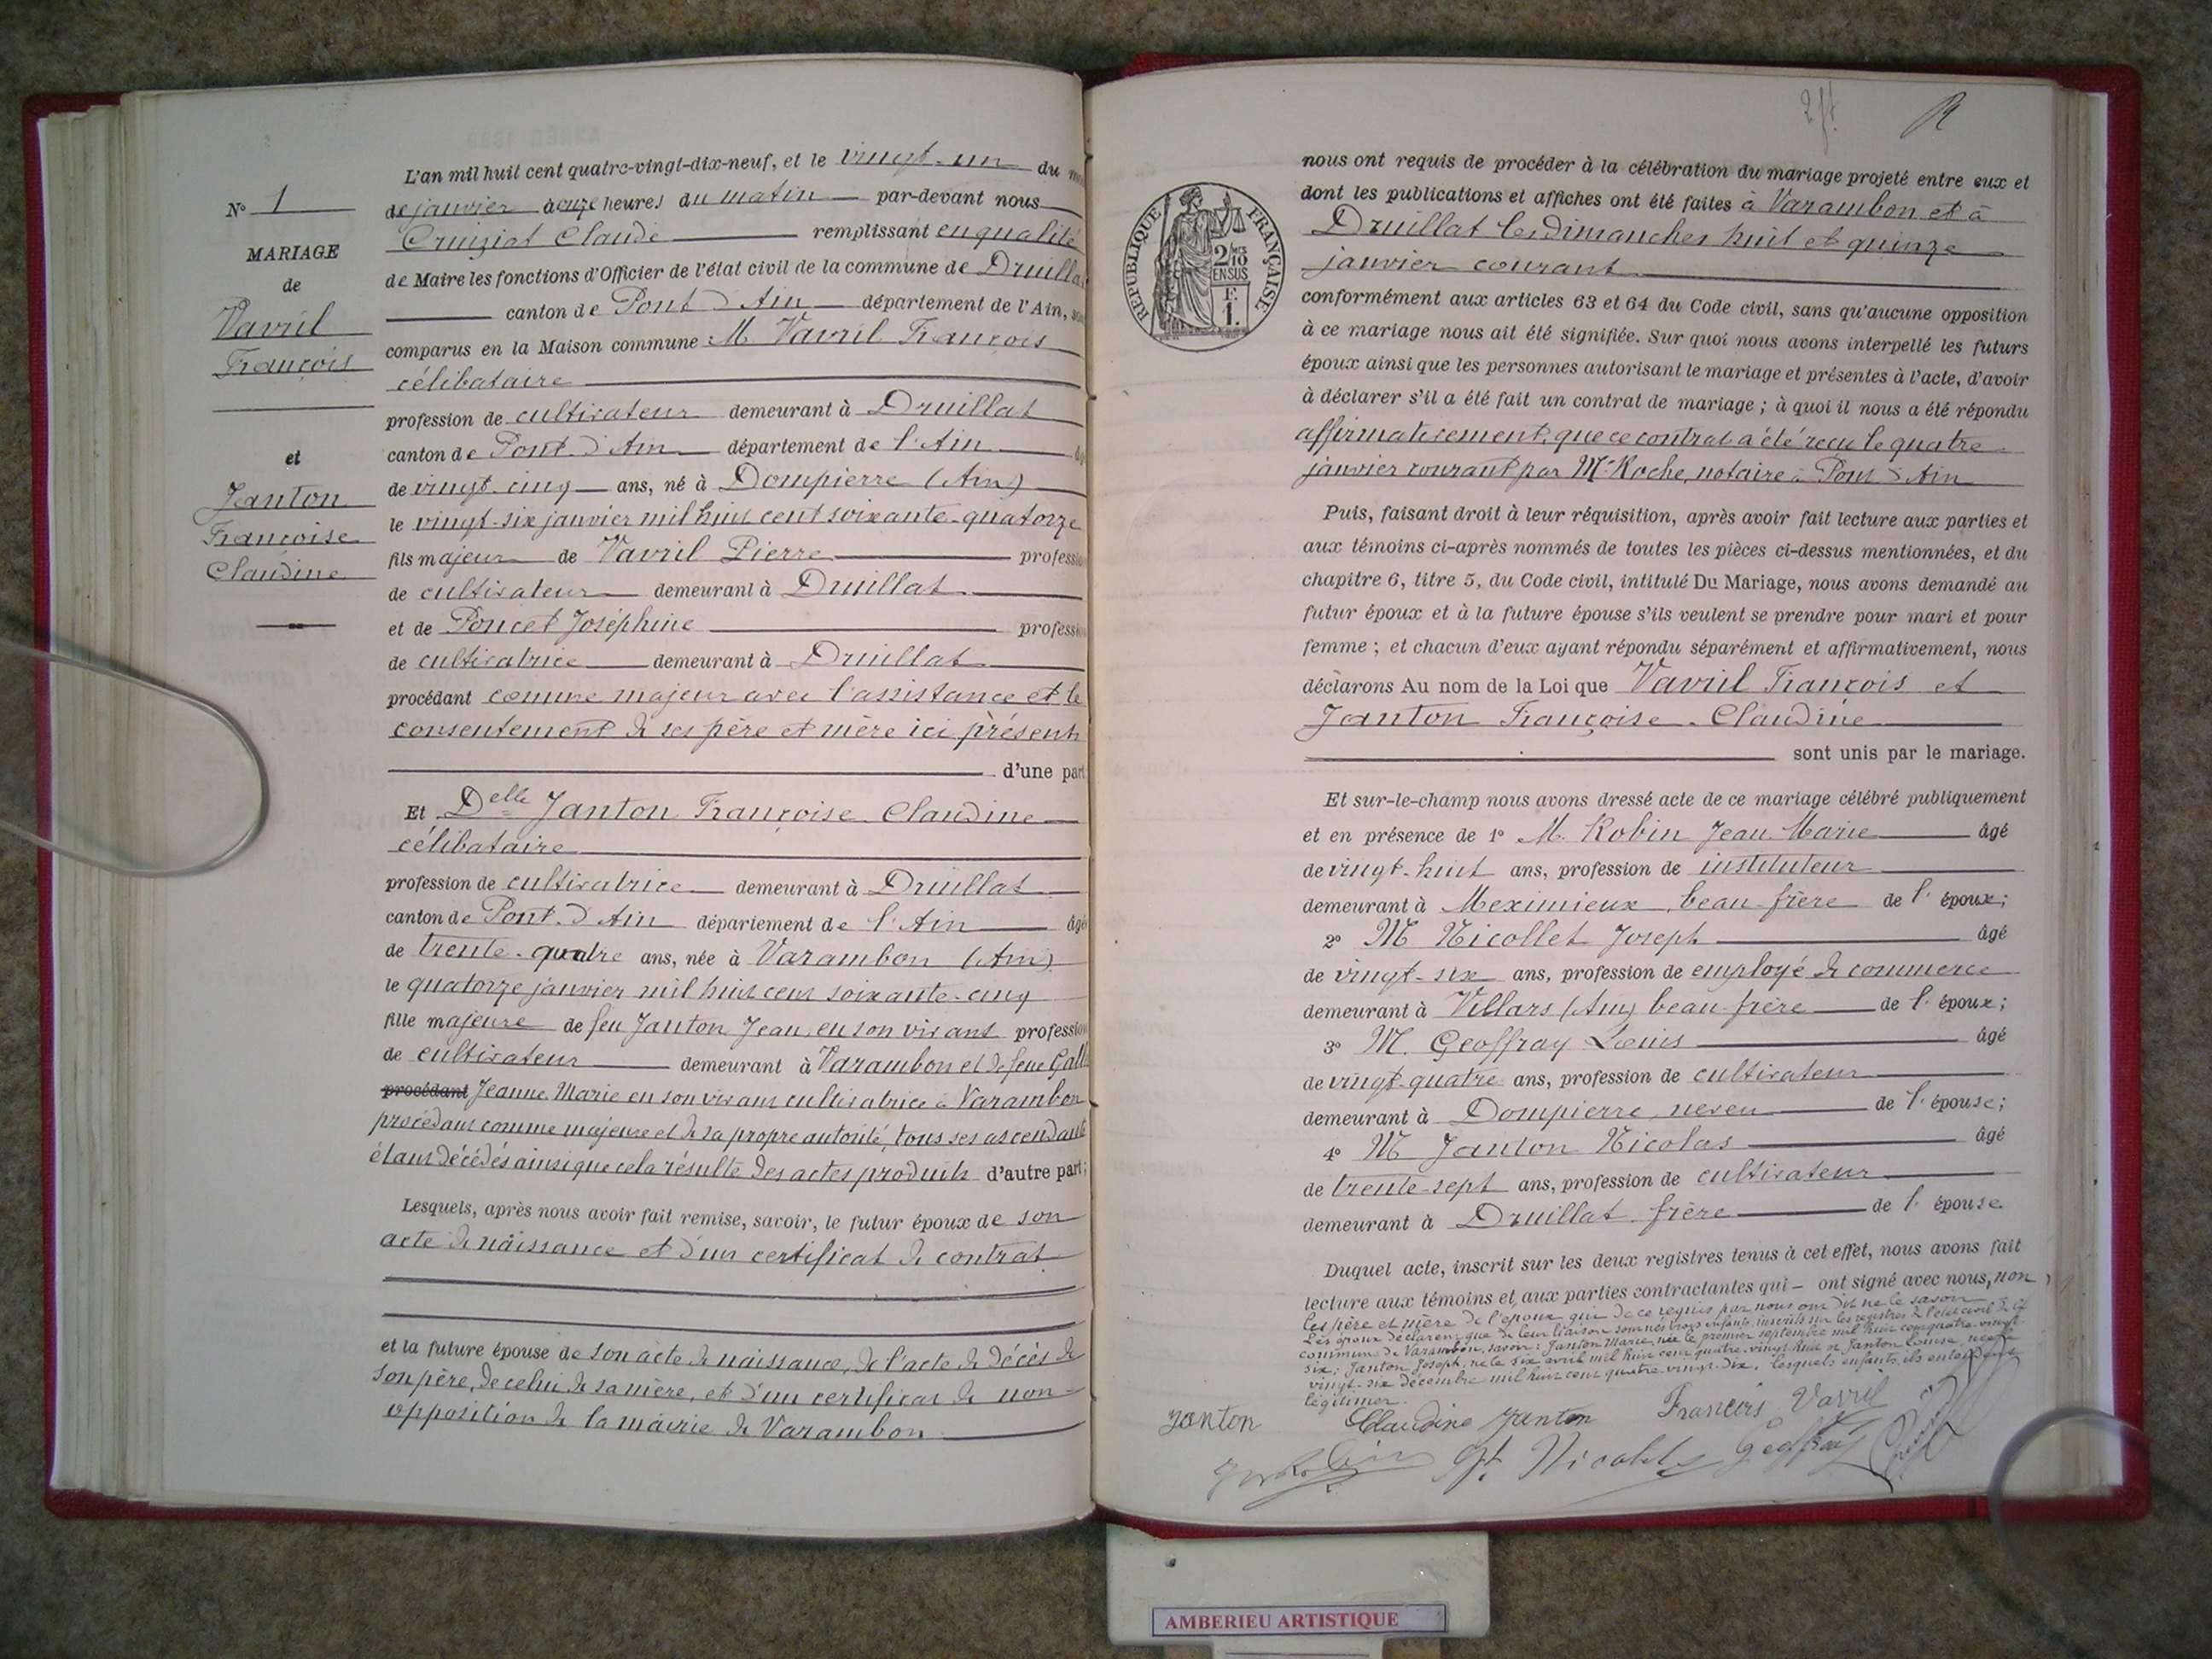 N° 1
MARIAGE
de
Vavril
François
et
Janton
Françoise
Claudine
L'an mil huit cent quatre-vingt-dix-neuf, et le vingt-un du
de janvier à onze heures du matin par-devant nous
Cruiziat Claude remplissant en qualité
de Maire les fonctions d'Officier de l'état civil de la commune de Druillat
canton de Pont d'Ain département de l'Ain,
comparus en la Maison commune M Vavril François
célibataire
profession de cultivateur demeurant à Druillat
canton de Pont-d'Ain département de l'Ain
de vingt-cinq ans, né à Dompierre (Ain)
le vingt-six janvier mil huit cent soixante-quatorze
fils majeur de Vavril Pierre profession
de cultivateur demeurant à Druillat
et de Poncet Joséphine profession
de cultivatrice demeurant à Druillat
procédant comme majeur avec l'assistance et le
consentement de ses père et mère ici présents
d'une part
Et Delle Janton Françoise-Claudine
célibataire
profession de cultivatrice demeurant à Druillat
canton de Pont-d'Ain département de l'Ain âgé
de trente-quatre ans, née à Varambon (Ain)
le quatorze janvier mil huit cent soixante-cinq
fille majeure de feu Janton Jean, en son vivant profession
de cultivateur demeurant à Varambon et de feue Gall
procédant Jeanne Marie en son vivant cultivatrice à Varambon
procédant comme majeure et de sa propre autorité, tous ses ascendants
étant décédés ainsi que cela résulte des actes produits d'autre part;
Lesquels, après nous avoir fait remise, savoir, le futur époux de son
acte de naissance et d'un certificat de contrat
et la future épouse de son acte de naissance, de l'acte de décès de
son père, de celui de sa mère, et d'un certificat de non-
opposition de la mairie de Varambon
RÉPUBLIQUE FRANÇAISE
2/10
EN SUS
F.
1.
nous ont requis de procéder à la célébration du mariage projeté entre eux et
dont les publications et affiches ont été faites à Varambon et à
Druillat les dimanches huit et quinze
janvier courant
conformément aux articles 63 et 64 du Code civil, sans qu'aucune opposition
à ce mariage nous ait été signifiée. Sur quoi nous avons interpellé les futurs
époux ainsi que les personnes autorisant le mariage et présentes à l'acte, d'avoir
à déclarer s'il a été fait un contrat de mariage ; à quoi il nous a été répondu
affirmativement, que ce contrat a été reçu le quatre
janvier courant par Me Roche, notaire à Pont d'Ain
Puis, faisant droit à leur réquisition, après avoir fait lecture aux parties et
aux témoins ci-après nommés de toutes les pièces ci-dessus mentionnées, et du
chapitre 6, titre 5, du Code civil, intitulé Du Mariage, nous avons demandé au
futur époux et à la future épouse s'ils veulent se prendre pour mari et pour
femme ; et chacun d'eux ayant répondu séparément et affirmativement, nous
déclarons Au nom de la Loi que Vavril François et
Janton Françoise-Claudine
sont unis par le mariage.
Et sur-le-champ nous avons dressé acte de ce mariage célébré publiquement
et en présence de 1° M. Robin Jean-Marie âgé
de vingt-huit ans, profession de instituteur
demeurant à Meximieux, beau-frère de l'époux;
2° M Nicollet Joseph âgé
de vingt-six ans, profession de employé de commerce
demeurant à Villars (Ain) beau-frère de l'époux;
3° M. Geoffray Louis âgé
de vingt-quatre ans, profession de cultivateur
demeurant à Dompierre neveu de l'épouse;
4° M Janton Nicolas âgé
de trente-sept ans, profession de cultivateur
demeurant à Druillat frère de l'épouse.
Duquel acte, inscrit sur les deux registres tenus à cet effet, nous avons fait
lecture aux témoins et aux parties contractantes qui – ont signé avec nous, non
les père et mère de l'époux qui de ce requis par nous ont dit ne le savoir
Les époux déclarent que de leur liaison sont nés trois enfants inscrits sur les registres de l'état civil de la
commune de Varambon, savoir: Janton Marie, née le premier septembre mil huit cent quatre-vingt-
six; Janton Joseph, né le six avril mil huit cent quatre-vingt-huit et Janton Louise, née le
vingt-six décembre mil huit cent quatre-vingt-dix, lesquels enfants ils entendent
légitimer.
Janton Claudine Janton François Vavril
Nicollet Geoffray
AMBERIEU ARTISTIQUE